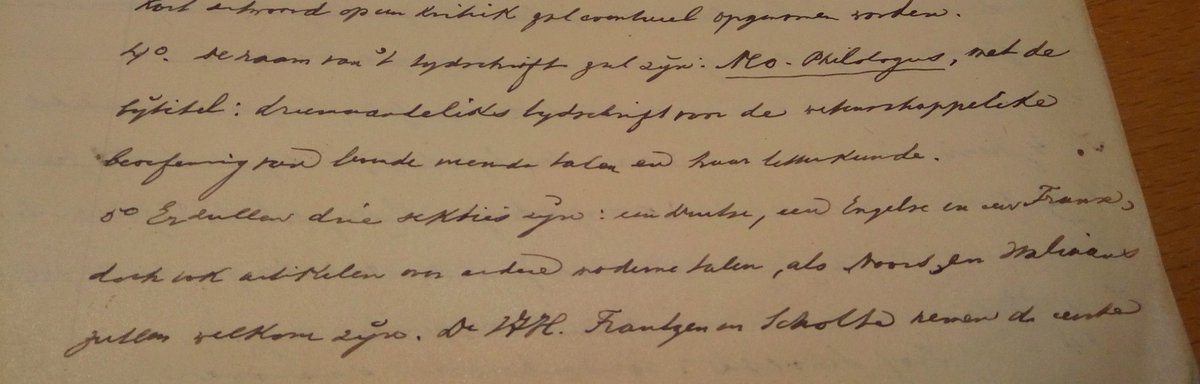 kort antwoord op een kritiek zal eventueel opgenomen worden.
4o. De naam van 't tydschrift zal zyn: Neo-Philologus, met de
bytitel: driemaandeliks tydschrift voor de wetenschappelike
beoefening van levende vreemde talen en haar letterkunde.
5o Er zullen drie sekties zyn: een duitse, een Engelse en een Franse,
doch ook artikelen over andere moderne talen, als Noors, en Italiaans
zullen welkom zyn. De HH. Frantzen en Scholte nemen de eerste